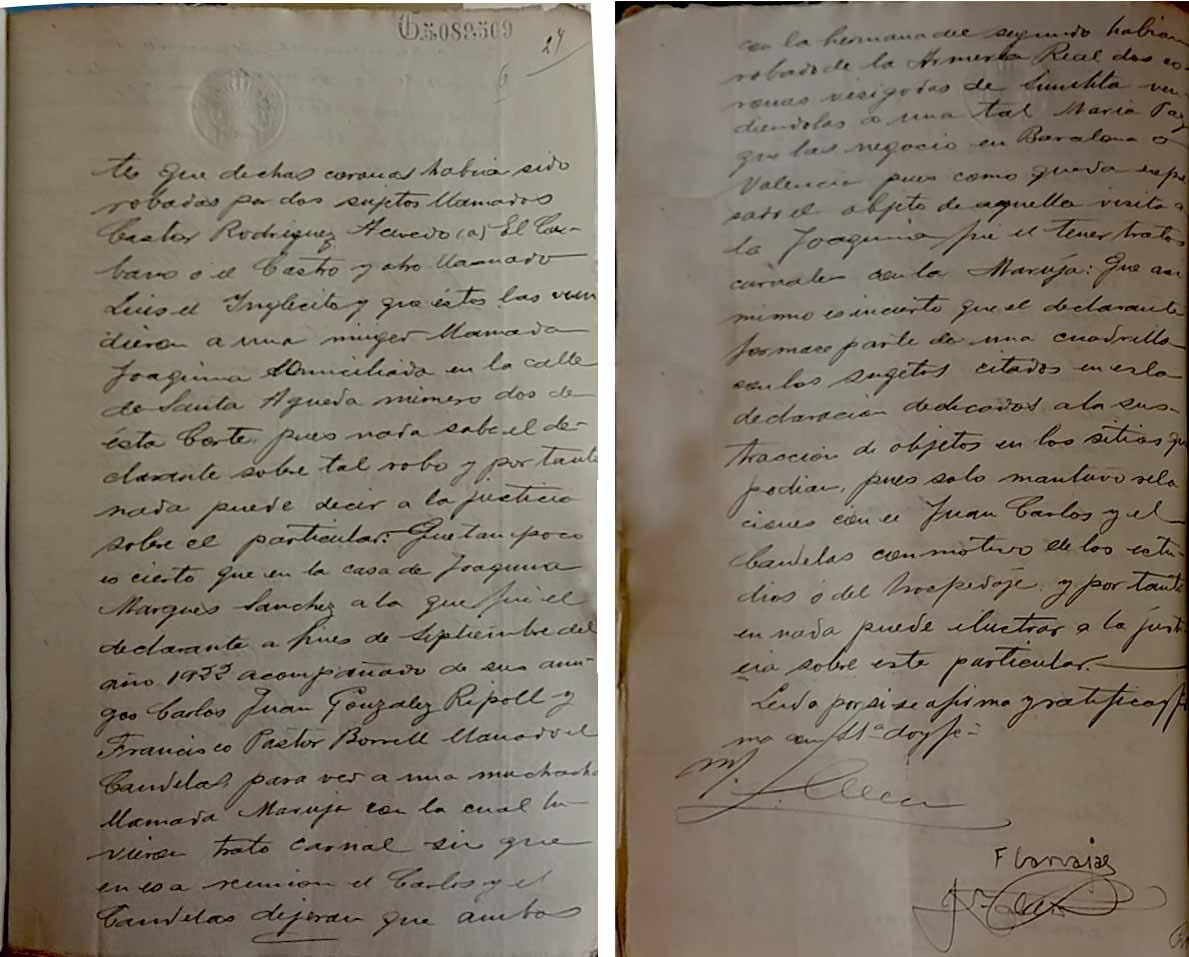 G5089509
27
6
te que dechas coronas habia sido
robadas por dos sujetos llamados
Castor Rodriguez Acevedo (a) El Cu-
bano o el Castro y otro llamado
Luis el Inglecito y que éstos las ven
dieron a una muger llamada
Joaquina domiciliada en la calle
de Santa Agueda número dos de
ésta Corte, pues nada sabe el de-
clarante sobre tal robo y por tanto
nada puede decir a la justicia
sobre el particular: Que tan poco
es cierto que en la casa de Joaquina
Marques Sanchez a la que fué el
declarante a fines de Septiembre del
año 1933 acompañado de sus ami-
gos Carlos Juan Gonzalez Ripoll y
Francisco Pastor Borrell llamado el
Candelas, para ver a una muchacha
llamada Maruja con la cual tu-
vieron trato carnal sin que
en esa reunion el Carlos y el
Candelas dijeran que ambos
con la hermana del segundo habian
robado de la Armeria Real dos co-
ronas visigodas de Suinthila ven-
diendolas a una tal Maria Paz
que las negocio en Barcelona o
Valencia pues como queda expre
sado el objeto de aquella visita a
la Joaquina fué el tener tratos
carnales con la Maruja: Que asi
mismo es incierto que el declarante
formace parte de una cuadrilla
con los sugetos citados en esta
declaracion dedicados a la sus-
traccion de objetos en los sitios que
podian, pues solo mantuvo rela
ciones con el Juan Carlos y el
Candelas con motivo de los estu-
dios o del hospedaje y por tanto
en nada puede ilustrar a la justi
cia sobre este particular.
Leido por si se afirma y ratifica fir
ma con S.Sª doy fe-
F Carvajal